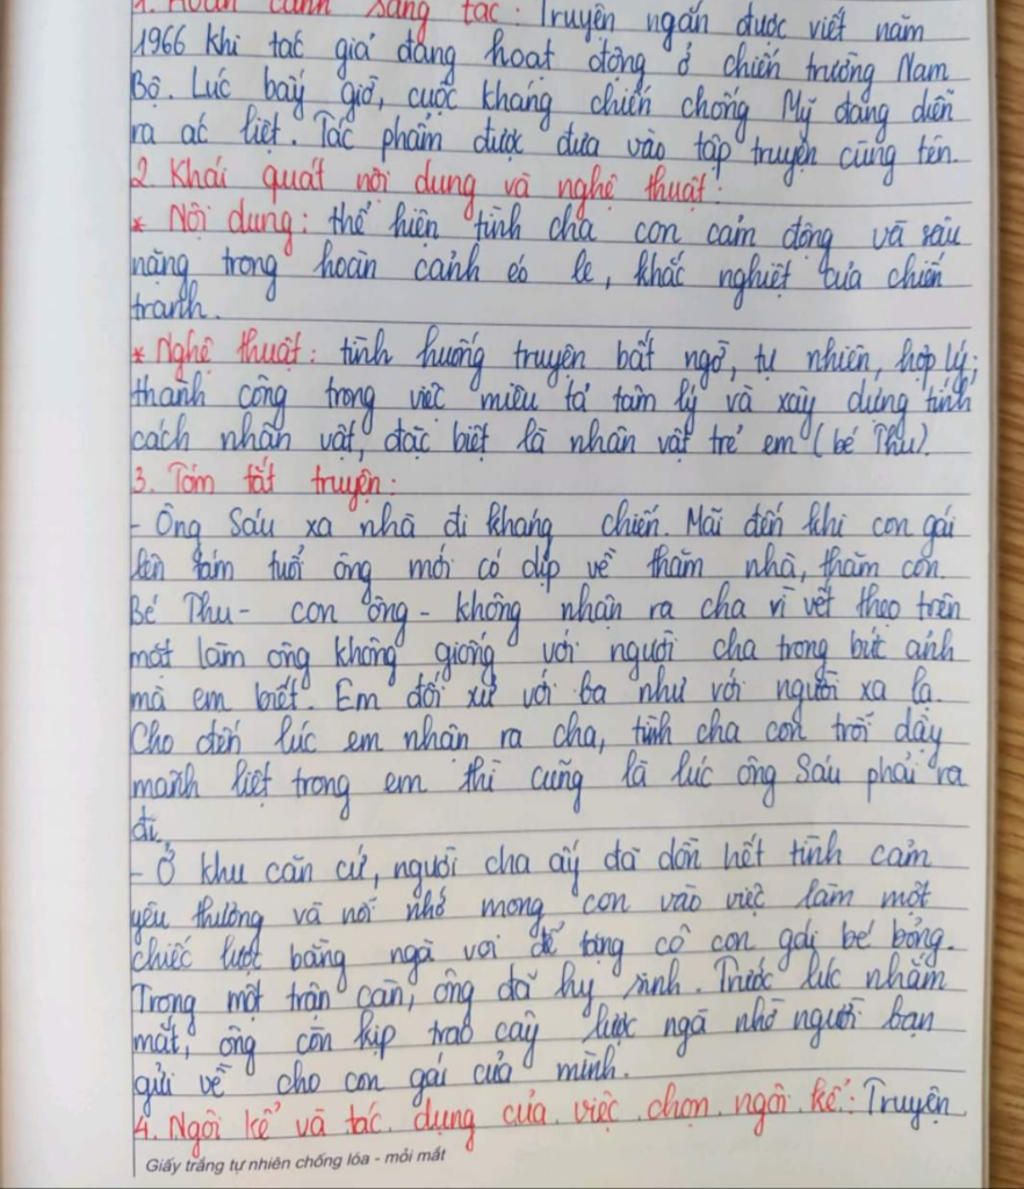 1. Hoàn cảnh sáng tác: Truyện ngắn được viết năm
1966 khi tác giả đang hoạt động ở chiến trường Nam
Bộ. Lúc bấy giờ, cuộc kháng chiến chống Mỹ đang diễn
ra ác liệt. Tác phẩm được đưa vào tập truyện cùng tên.
2. Khái quát nội dung và nghệ thuật:
* Nội dung: thể hiện tình cha con cảm động và sâu
nặng trong hoàn cảnh éo le, khắc nghiệt của chiến
tranh.
* Nghệ thuật: tình huống truyện bất ngờ, tự nhiên, hợp lý;
thành công trong việc miêu tả tâm lý và xây dựng tính
cách nhân vật, đặc biệt là nhân vật trẻ em (bé Thu).
3. Tóm tắt truyện:
- Ông Sáu xa nhà đi kháng chiến. Mãi đến khi con gái
lên tám tuổi ông mới có dịp về thăm nhà, thăm con.
Bé Thu - con ông - không nhận ra cha vì vết thẹo trên
mặt làm ông không giống với người cha trong bức ảnh
mà em biết. Em đối xử với ba như với người xa lạ.
Cho đến lúc em nhận ra cha, tình cha con trỗi dậy
mãnh liệt trong em thì cũng là lúc ông Sáu phải ra
đi.
- Ở khu căn cứ, người cha ấy đã dồn hết tình cảm
yêu thương và nỗi nhớ mong con vào việc làm một
chiếc lược bằng ngà voi để tặng cô con gái bé bỏng.
Trong một trận càn, ông đã hy sinh. Trước lúc nhắm
mắt, ông còn kịp trao cây lược ngà nhờ người bạn
gửi về cho con gái của mình.
4. Ngôi kể và tác dụng của việc chọn ngôi kể: Truyện
Giấy trắng tự nhiên chống lóa - mỏi mắt